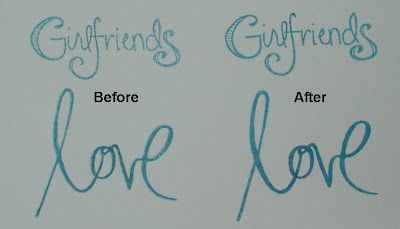 Girlfriends Girlfriends
Before After
love love